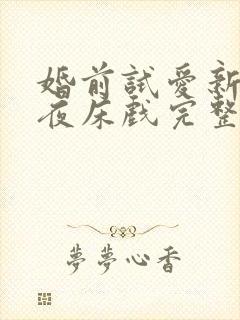 婚前試愛新
夜床戲完整
夢夢心香